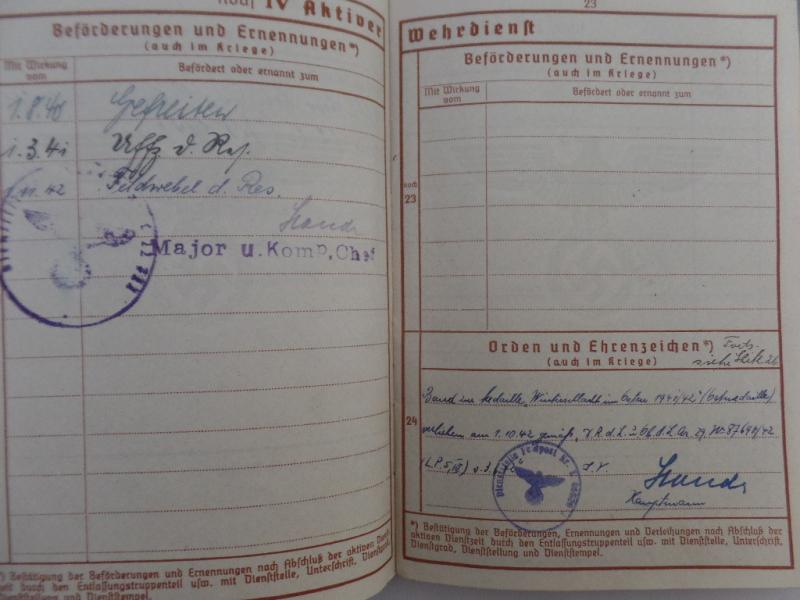 Noch IV Aktiver
Beförderungen und Ernennungen*)
(auch im Kriege)
Mit Wirkung vom
Befördert oder ernannt zum
1.8.40 Gefreiten
1.3.41 Uffz d. Res.
42 Feldwebel d. Res.
Major u. Komp. Chef
*) Bestätigung der Beförderungen und Ernennungen nach Abschluß der aktiven Dienst-
zeit durch den Entlassungstruppenteil usw. mit Dienststelle, Unterschrift, Dienstgrad,
Dienststellung und Dienststempel.
23
Wehrdienst
Beförderungen und Ernennungen*)
(auch im Kriege)
Mit Wirkung vom
Befördert oder ernannt zum
noch
23
Orden und Ehrenzeichen*)
(auch im Kriege)
siehe Seite
24
Medaille "Winterschlacht im Osten 1941/42" (Ostmedaille)
verliehen am 1.10.42 gemäß
Dienststelle Feldpost Nr.
I.V.
Hauptmann
*) Bestätigung der Beförderungen, Ernennungen und Verleihungen nach Abschluß der
aktiven Dienstzeit durch den Entlassungstruppenteil usw. mit Dienststelle, Unterschrift,
Dienstgrad, Dienststellung und Dienststempel.